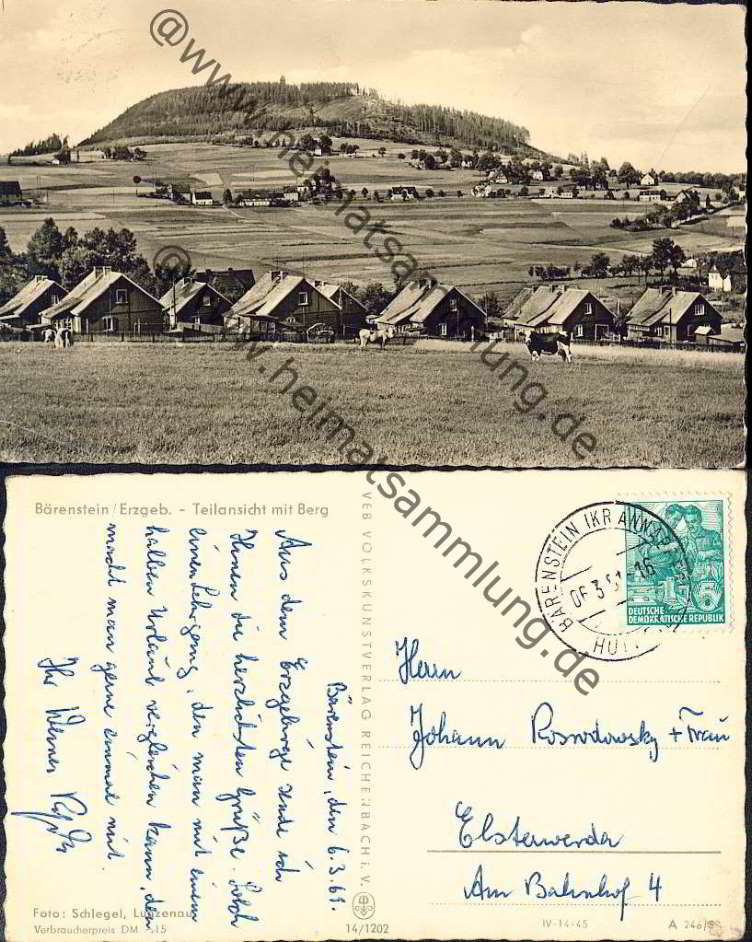 @www.heimatsammlung.de
@www.heimatsammlung.de
Bärenstein/Erzgeb. - Teilansicht mit Berg
Bärenstein, den 6.3.61.
Aus dem Erzgebirge sende ich
Ihnen die herzlichsten Grüße. Solch
einen Lehrgang, den man mit einem
halben Urlaub vergleichen kann, den
macht man gerne einmal mit.
Ihr Werner
Foto: Schlegel, Lunzenau
Verbraucherpreis DM -,15
VEB VOLKSKUNSTVERLAG REICHENBACH i. V.
14/1202
BÄRENSTEIN (KR ANNAB
06.3.61
16
DEUTSCHE
DEMOKRATISCHE REPUBLIK
5
Herrn
Johann + Frau
Elsterwerda
Am Bahnhof 4
IV-14-45
A 246/